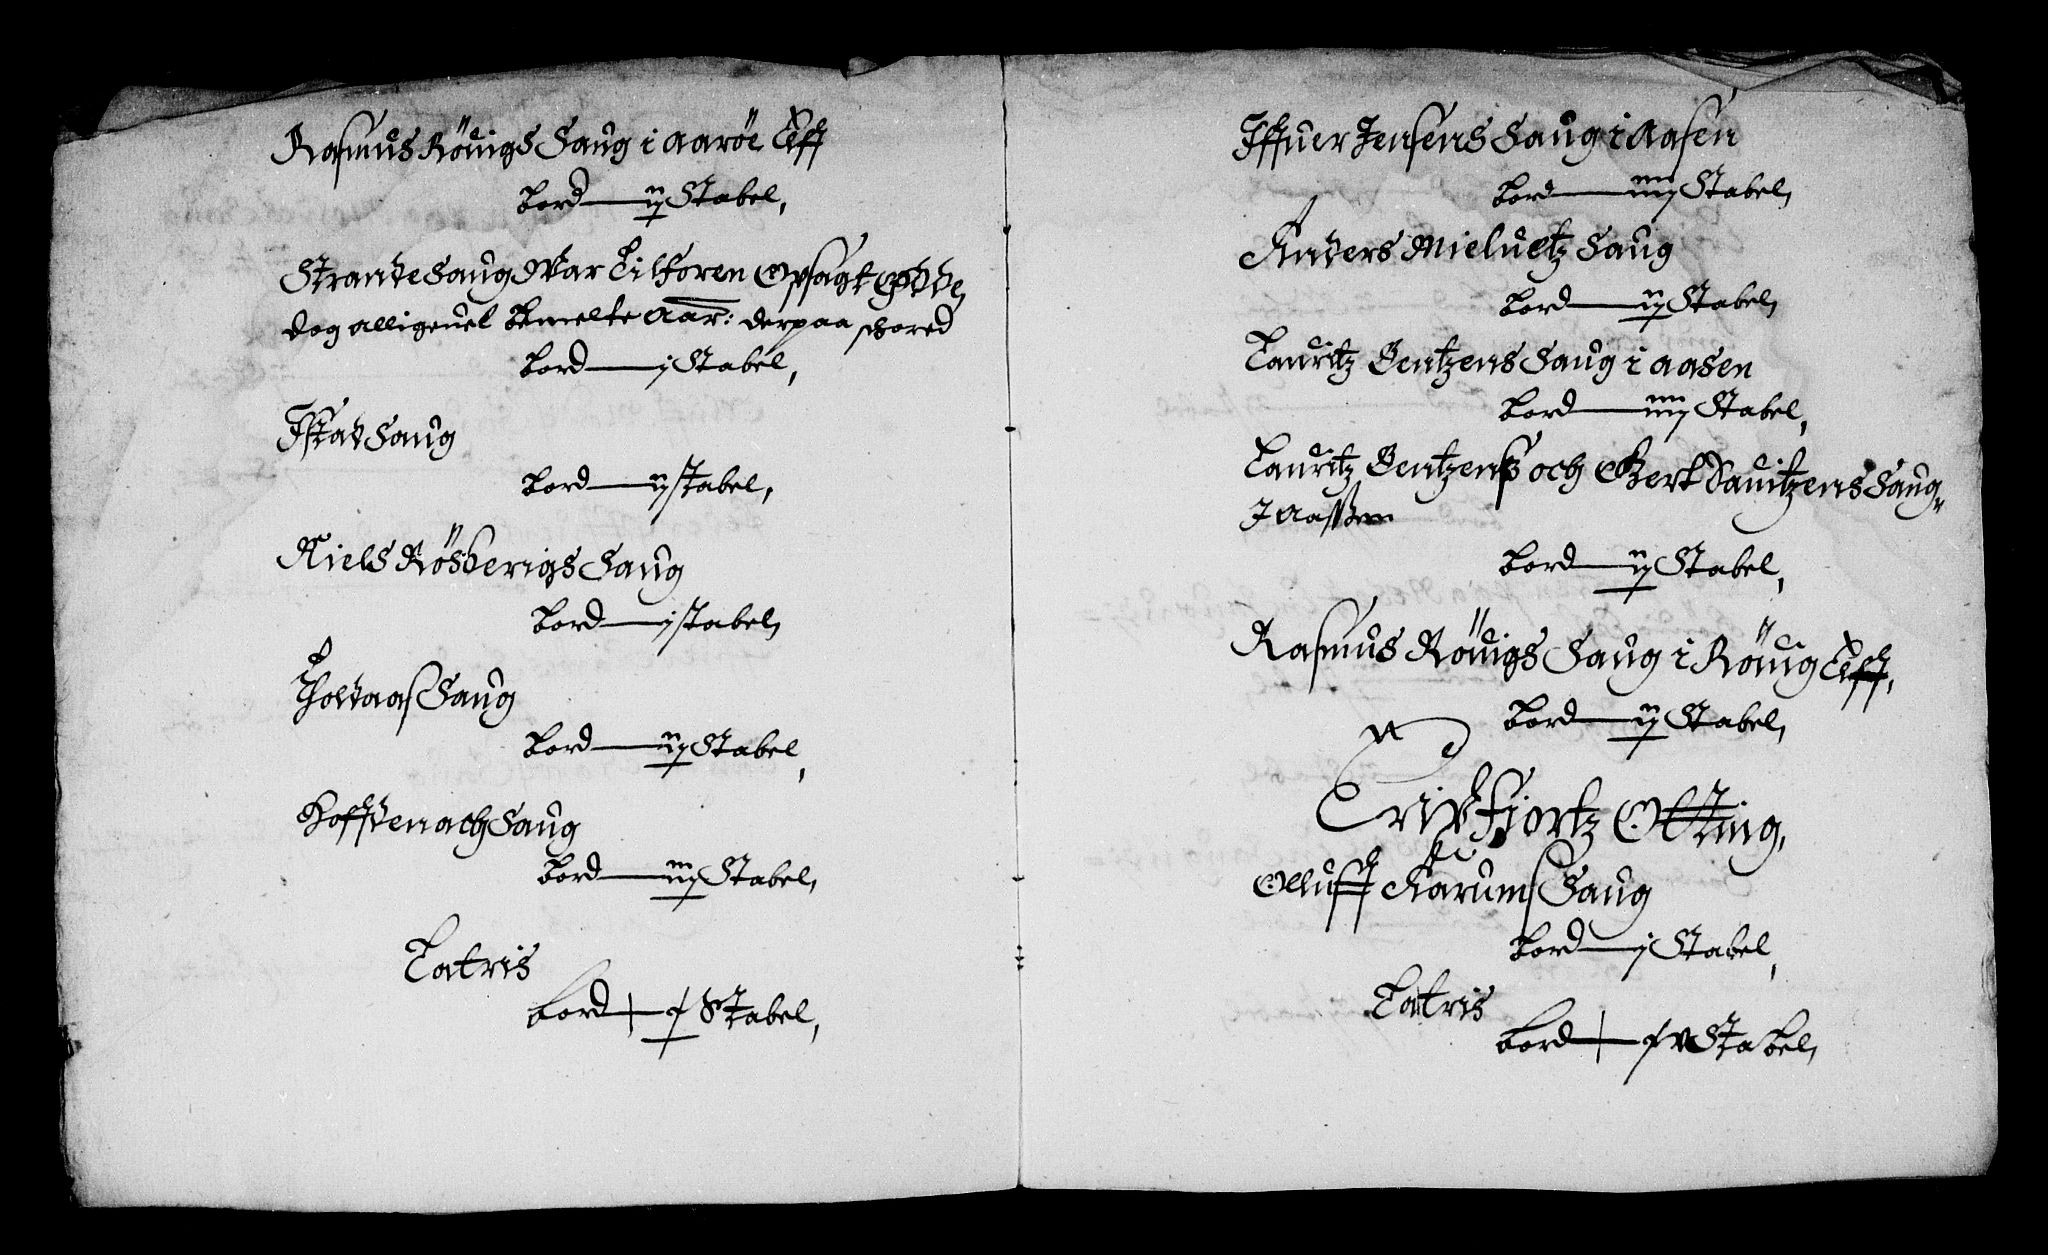 Rasmus Röuigs Saug i Aaröe Elff
Bord — ij Stabel,
Strande Saug War Tilforen Opsagt
dog alligeuel Bemelte Aar: derpaa schored
Bord — j Stabel,
Istad Saug
Bord — ij stabel,
Niels Rösberigs Saug
Bord — j stabel,
Tholdaas Saug
Bord — iij Stabel,
Hoffdenach Saug
Bord — iiij Stabel,
Latris
Bord — Stabel,
Iffuer Jensens Saug i Aasen
Bord — iiiij Stabel,
Anders Mieluetz Saug
Bord — iij Stabel,
Lauritz Bentzens Saug i Aasen
Bord — iiiij Stabel,
Lauritz Bentzenß och Gert Dauitzens Saug
J Aaßen
Bord — iij Stabel,
Rasmus Röuigs Saug i Röuig Elff,
Bord — iij Stabel,
Erixfjortz Otting,
Olluff Karums Saug
Bord — j Stabel,
Latris
Bord — Stabel,